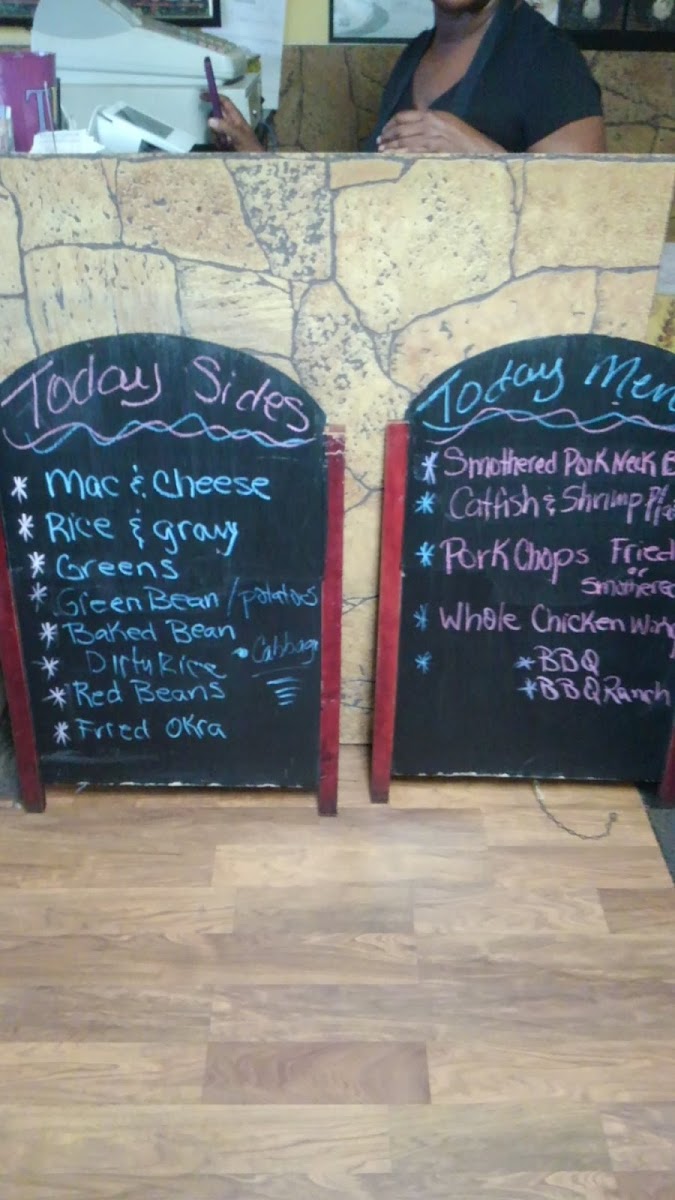 Today Sides
* Mac & Cheese
* Rice & gravy
* Greens
* Green Bean / potatoes
* Baked Bean
* Dirty Rice • Cabbage
* Red Beans
* Fried Okra
Today Men
* Smothered Pork Neck B
* Catfish & Shrimp
* Pork Chops Fried
or
Smothered
* Whole Chicken
* * BBQ
* BBQ Ranch